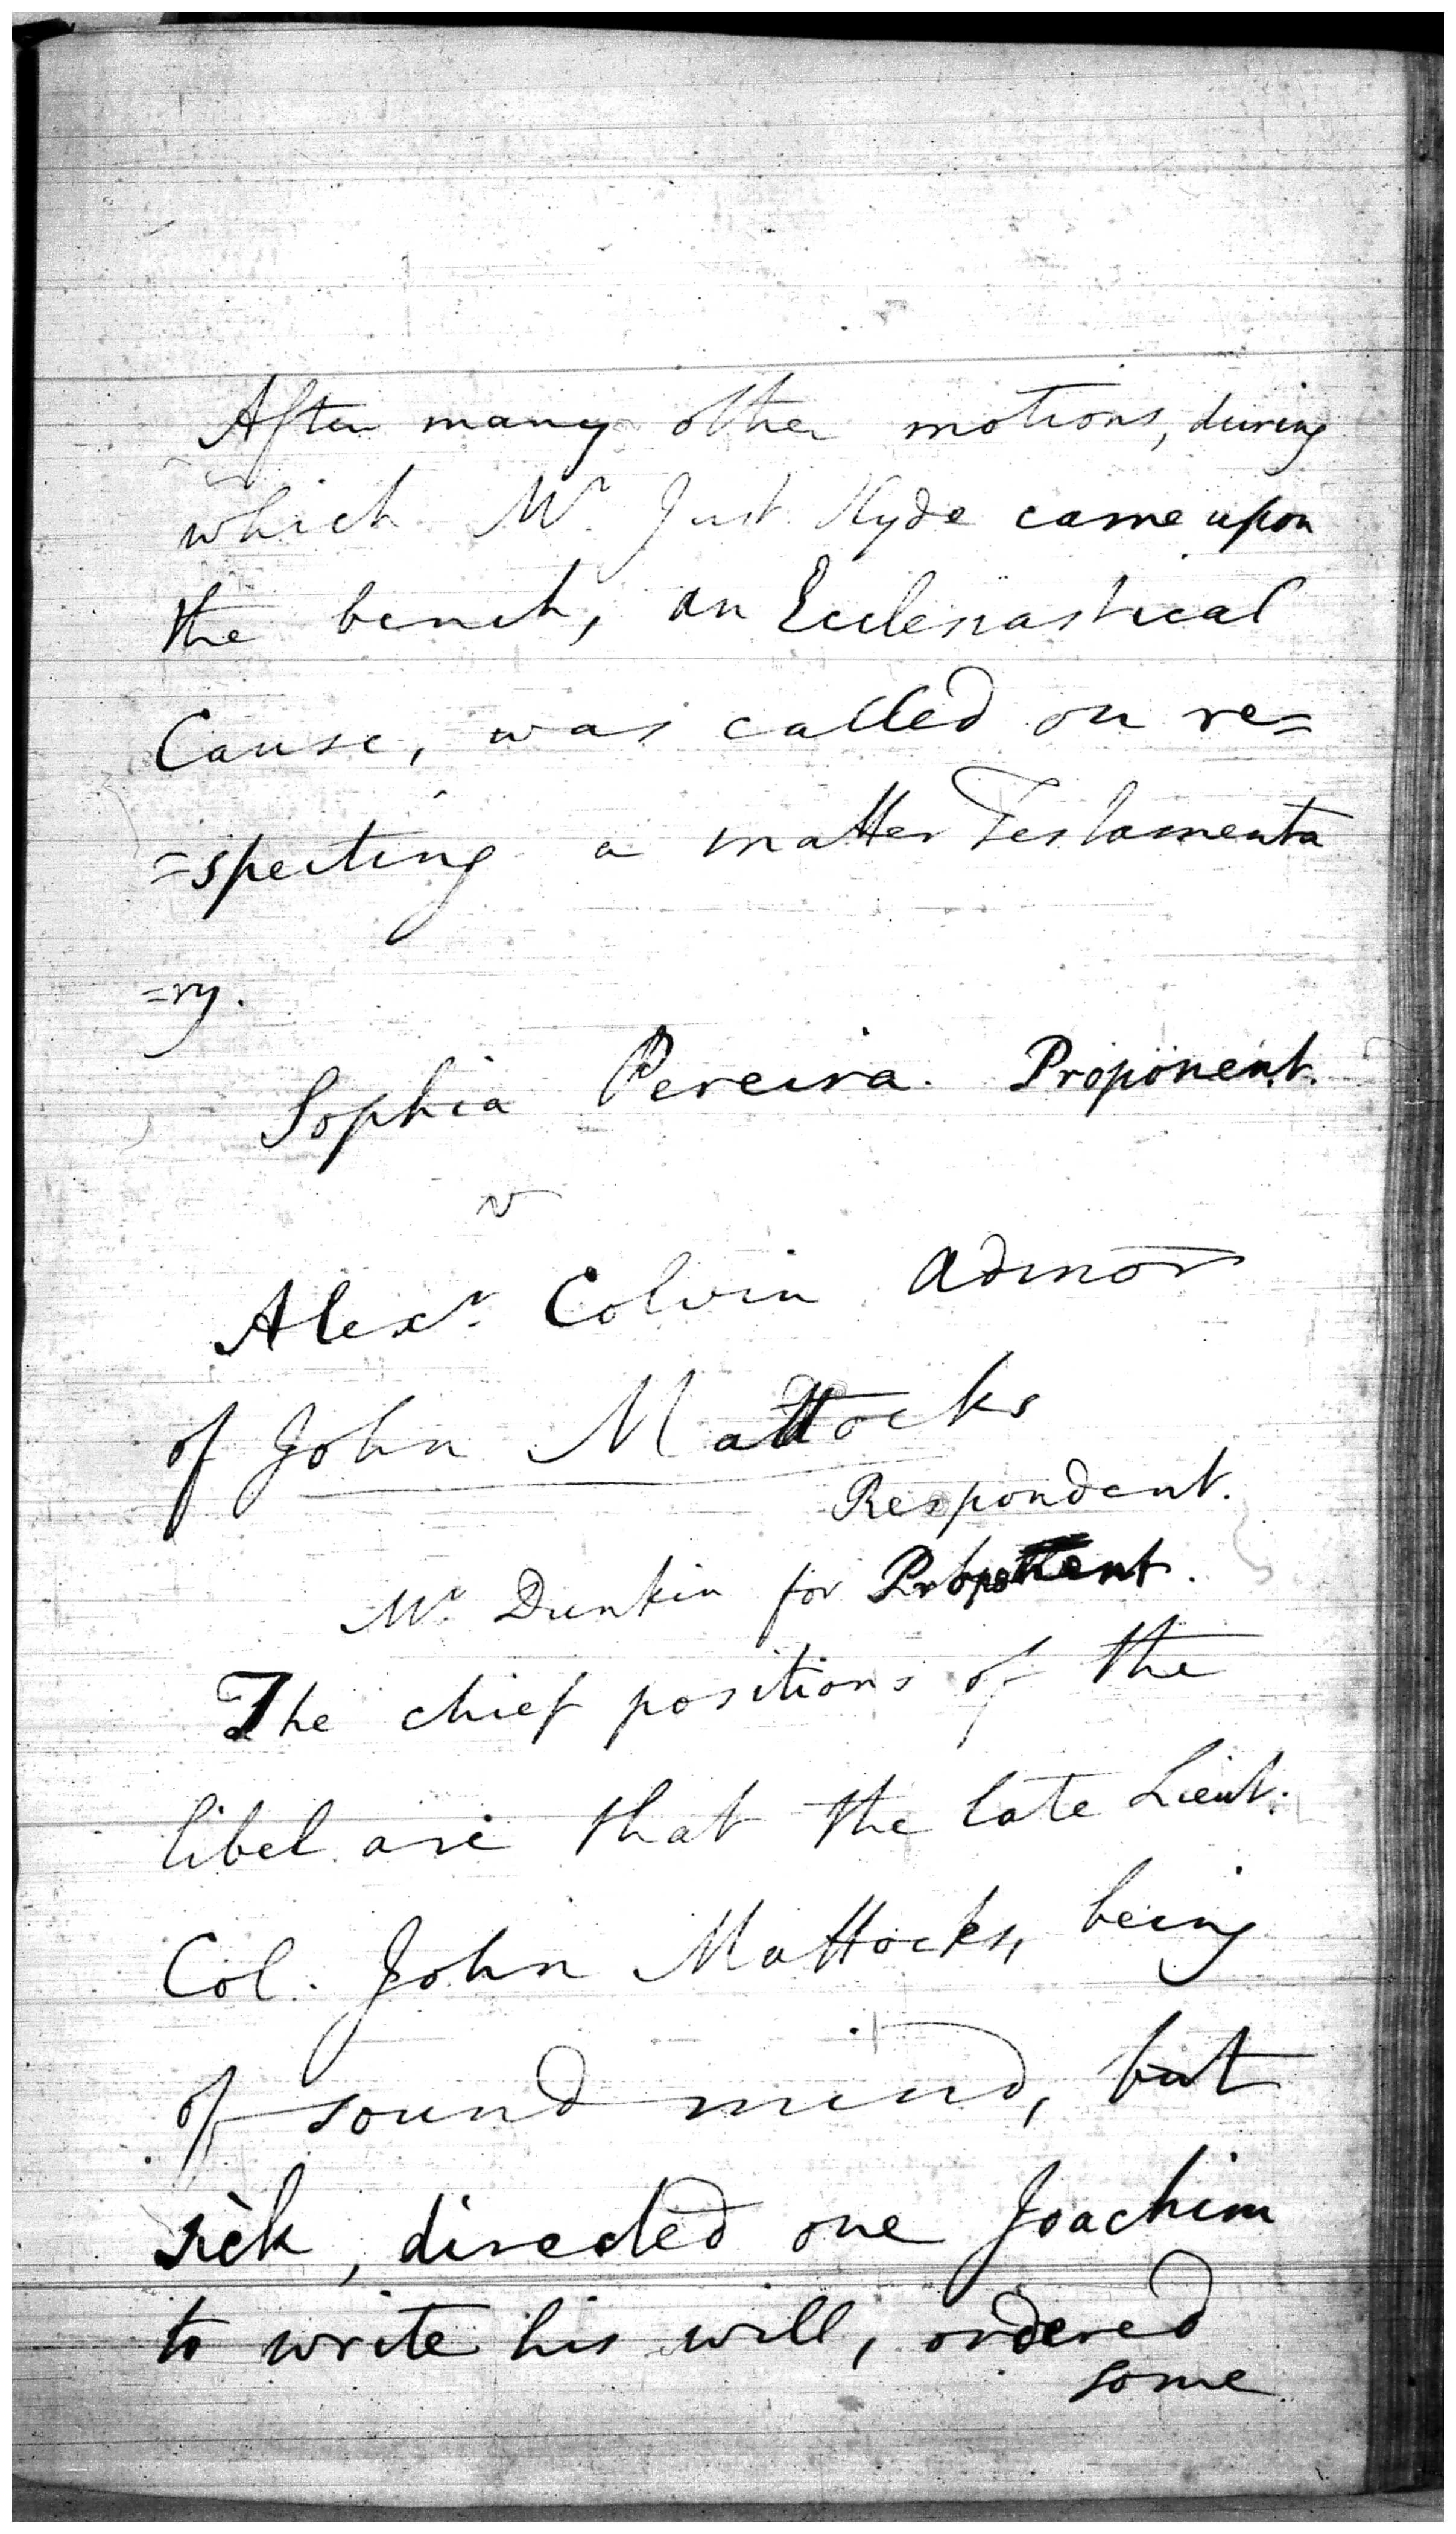 After many other motions, during
which Mr. Just. Hyde came upon
the bench, an Ecclesiastical
Cause, was called on re=
=specting a matter Testamenta
=ry.
Sophia Pereira. Proponent.
v
Alexr. Colvin Admor
of John Mattocks
Respondent.
Mr. Dunkin for Proponent.
The chief positions of the
libel are that the late Lieut.
Col. John Mattocks, being
of sound mind, but
sick, directed one Joachim
to write his will, ordered
some